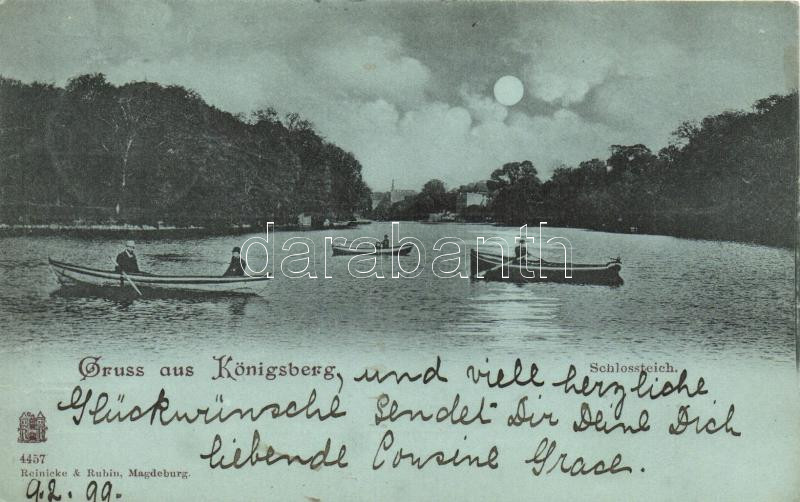 darabanth
Gruss aus Königsberg, und viele herzliche
Schlossteich.
Glückwünsche sendet Dir Deine Dich
liebende Cousine Grace.
4457
Reinicke & Rubin, Magdeburg.
9.2.99.